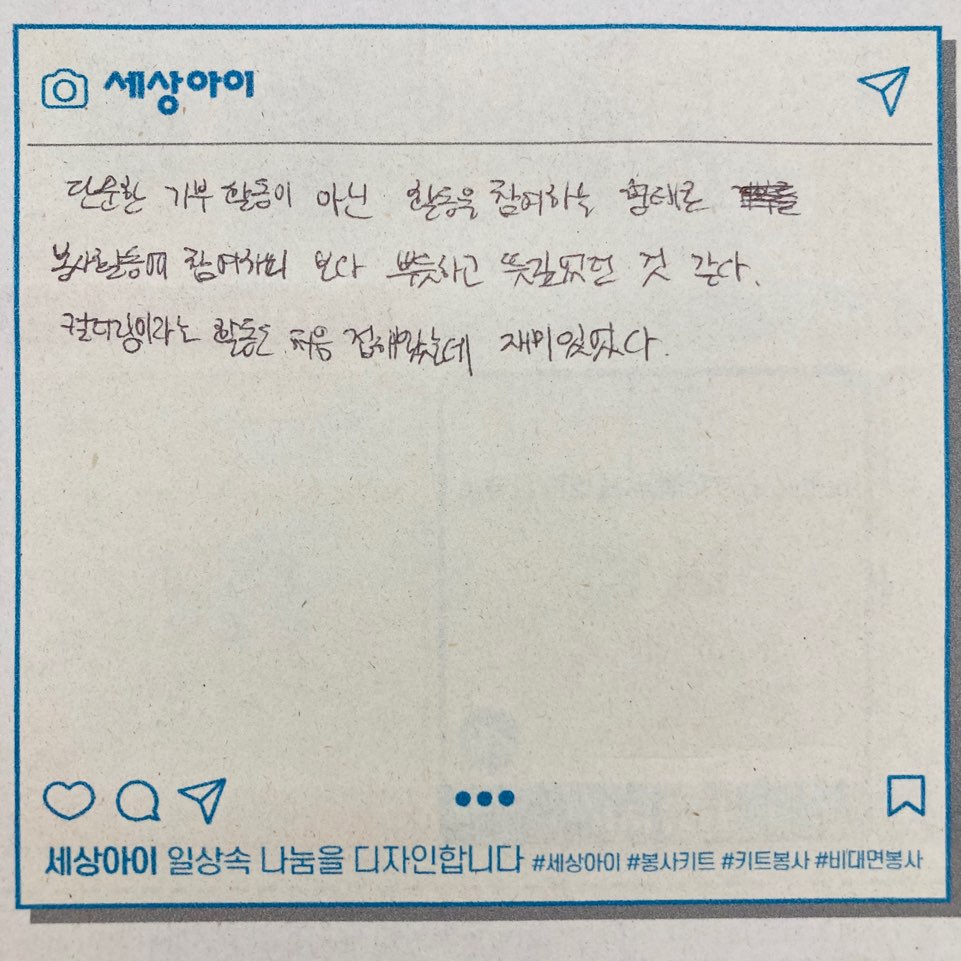 세상아이
단순한 기부 활동이 아닌 활동을 참여하는 형태로
봉사활동에 참여하니 보다 뿌듯하고 뜻깊었던 것 같다.
컬러링이라는 활동도 처음 접해봤는데 재미있었다.
세상아이 일상속 나눔을 디자인합니다 #세상아이 #봉사키트 #키트봉사 #비대면봉사